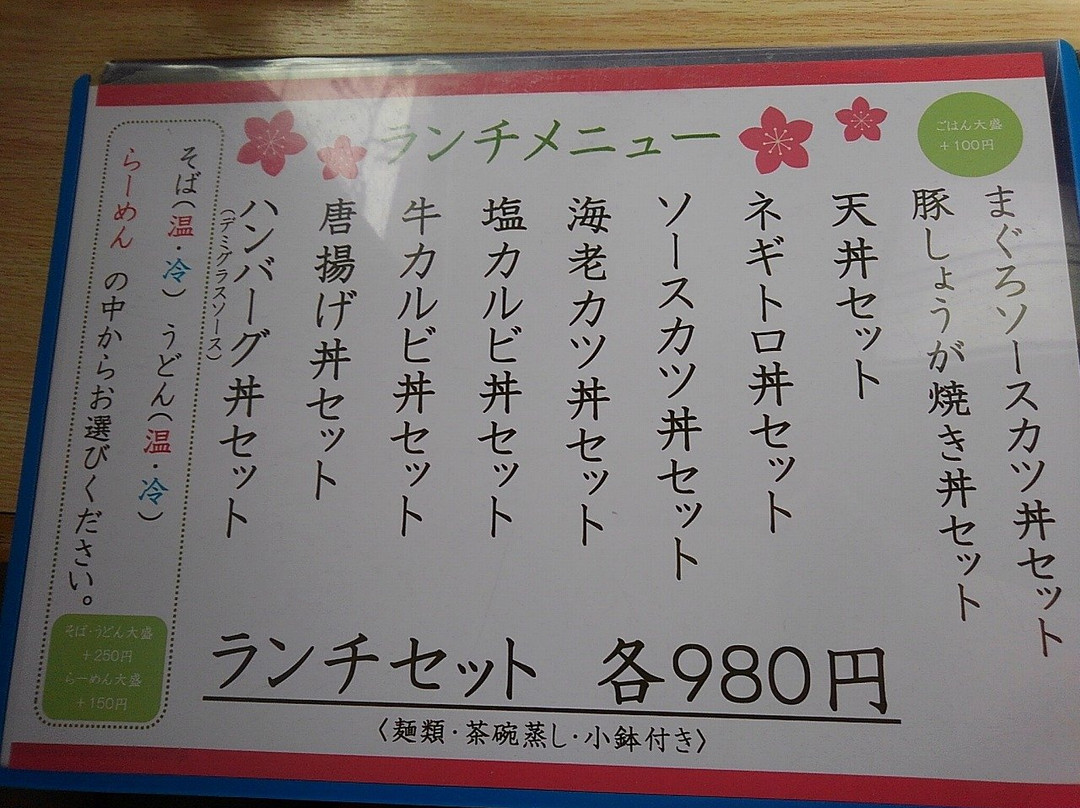 ランチメニュー
ごはん大盛
+100円
まぐろソースカツ丼セット
豚しょうが焼き丼セット
天丼セット
ネギトロ丼セット
ソースカツ丼セット
海老カツ丼セット
塩カルビ丼セット
牛カルビ丼セット
唐揚げ丼セット
ハンバーグ丼セット
(デミグラスソース)
そば(温・冷) うどん(温・冷)
らーめん の中からお選びください。
そば・うどん大盛
+250円
らーめん大盛
+150円
ランチセット 各980円
〈麺類・茶碗蒸し・小鉢付き〉